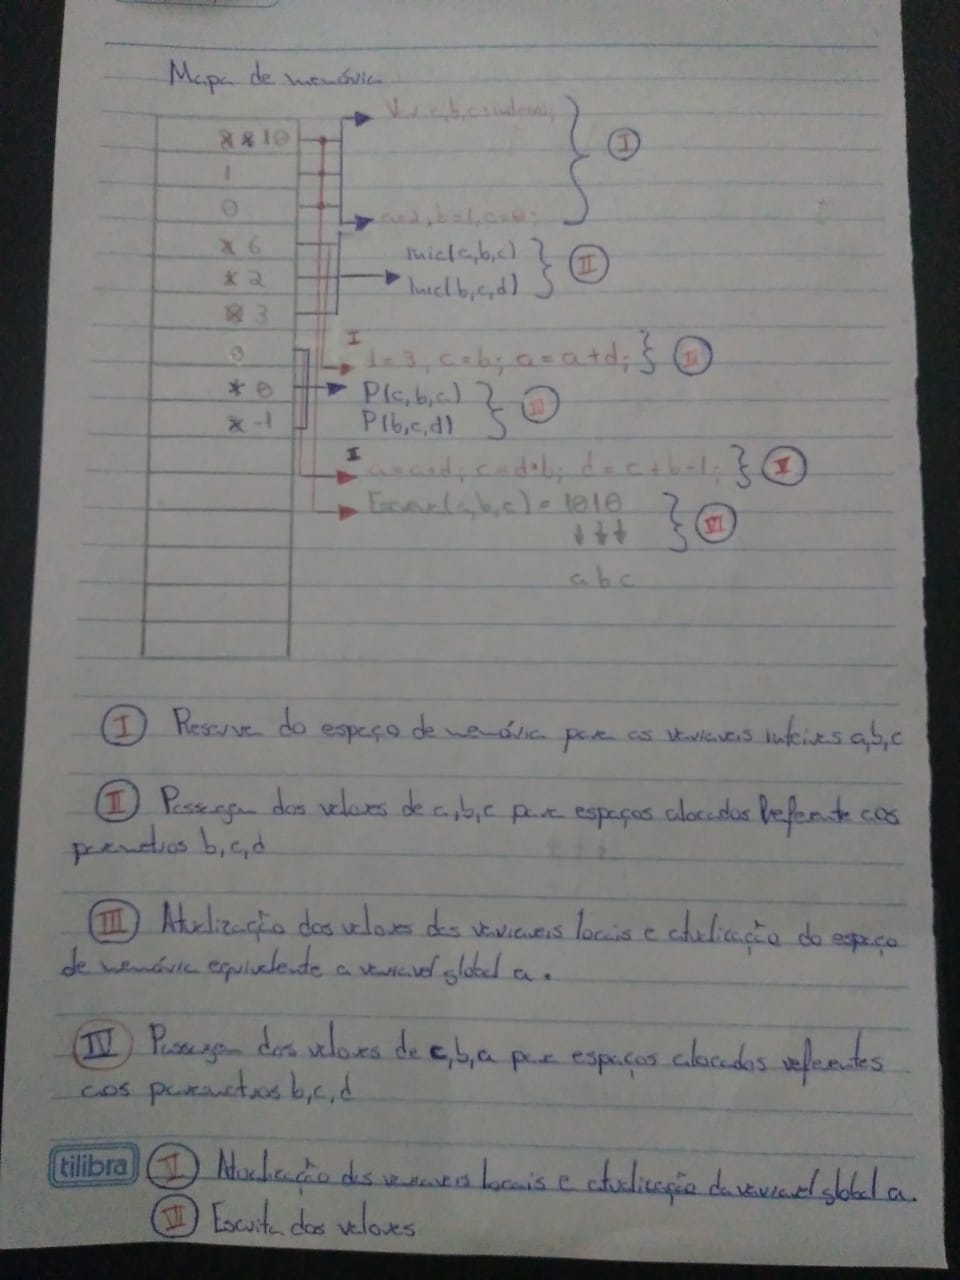 Mapa de memória
* * 10
1
0
* 6
* 2
* 3
0
* 0
* -1
Var a,b,c: inteiro;
I
a=2, b=1, c=0;
inic(a,b,c)
Inic(b,c,d)
II
I
d=3; c=b; a=a+d;
III
P(c,b,a)
P(b,c,d)
I
a=a+d; c=d*b; d=c+b-1;
V
Escrever(a,b,c) = 1010
VI
a b c
I Reserva do espaço de memória para as variaveis inteiras a,b,c
II Passagem dos valores de a,b,c para espaços alocados Referente aos
parametros b,c,d
III Atualização dos valores das variaveis locais e atualização do espaço
de memória equivalente a variavel global a.
IV Passagem dos valores de c,b,a para espaços alocados referentes
aos parametros b,c,d
tilibra
V Atualização das variaveis locais e atualização da variavel global a.
VI Escrita dos valores